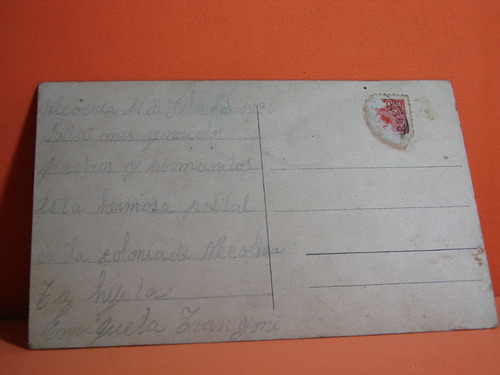 Necochea 11 de Febrero
Para mis queridos
padres y hermanitos
Esta hermosa postal
de la colonia de Necochea
hijita
Enriqueta